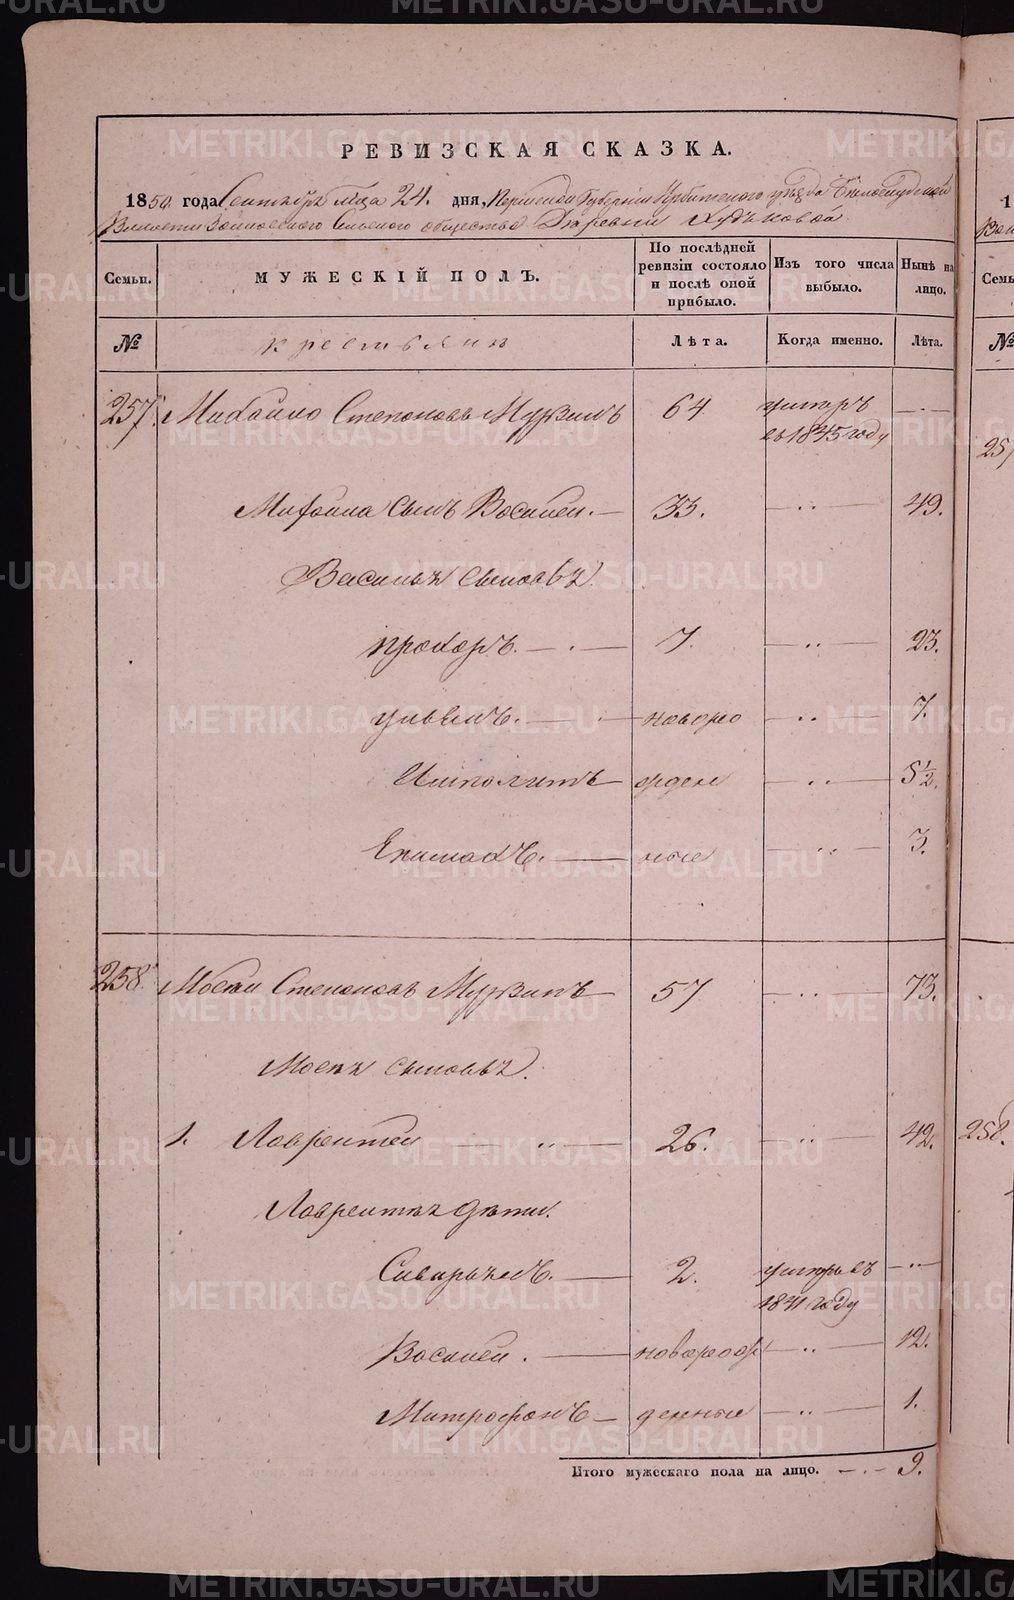 РЕВИЗСКАЯ СКАЗКА.
1850 года Сентября м-ца 24. дня, Пермской Губернии Ирбитского уѣзда Белослудской
Волости Зайковского Сельского общества Деревни Худяковой
Семьи. МУЖЕСКІЙ ПОЛЪ. По послѣдней ревизіи состояло и послѣ оной прибыло. Изъ того числа выбыло. Нынѣ на лицо.
№ крестьянъ Лѣта. Когда именно. Лѣта.
257 Михайло Степановъ Мурзинъ 64 умеръ въ 1845 году —
Михайла сынъ Василей. 33. — 49.
Василья сыновья
прохоръ. 7. — 23.
ульянъ. новоро — 7.
Ипполитъ жден — 5½.
Епимахъ. ные — 3.
258. Мосей Степановъ Мурзинъ 57 — 73.
Мосея сыновья.
1. Лаврентей 26. — 42.
Лаврентья дѣти.
Саварьянъ. 2. умеръ въ 1841 году —
Василей. новорож — 12.
Митрофанъ денные — 1.
Итого мужескаго пола на лицо. 9.
METRIKI.GASO-URAL.RU